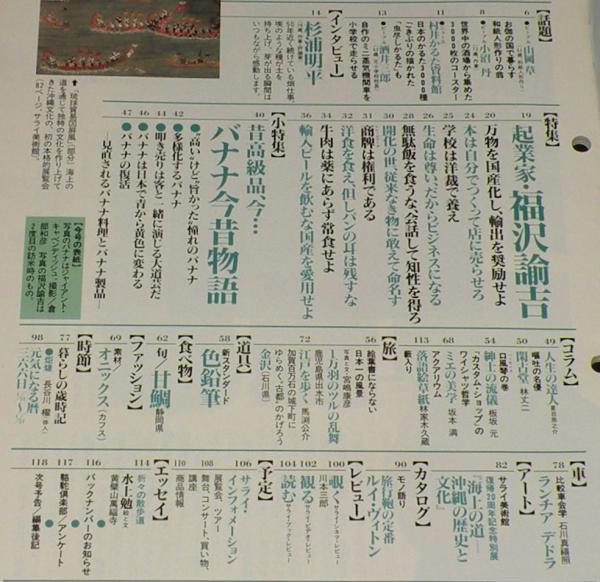 【話題】
6
山岡草
お伽の国で暮らす
和紙人形作りの翁
8
小沼 丹
世界中の酒場から集めた
3000枚のコースター
11
村井かるた資料館
日本のかるた3000種
「ごきぶりの描かれた
虫尽しかるた」も
13
酒井一郎
自作の二蒸気機関車を
小学校で走らせる
【インタビュー】
14
杉浦明平
50年近く続けている畑仕事。
埃のような種が土を
持ち上げ、芽が出る瞬間は
いつもながら感動します。
「琉球貿易図屏風」(部分) 海上の
道を通じて独特の文化を作り上げて
きた沖縄文化の、初の本格的展覧会
(82ページ。サライ美術館)。
【特集】
19
起業家・福沢諭吉
20
万物を国産化し、輸出を奨励せよ
24
本は自分でつくって店に売らせろ
25
学校は洋裁で養え
26
生命は尊い、だからビジネスになる
28
無駄飯を食うな、会話して知性を得ろ
30
開化の世、従来なき物に敢えて命名す
31
商牌は権利である
32
洋食を食え、但しパンの耳は残すな
34
牛肉は薬にあらず常食せよ
36
輸入ビールを飲むな国産を愛用せよ
【小特集】
40
昔高級品、今…
バナナ今昔物語
42
●“高い”けど“旨かった”憧れのバナナ
44
●多様化するバナナ
45
●叩き売りは客と一緒に演じる大道芸だ
46
●バナナは日本で青から黄色に変わる
47
●バナナの復活
―見直されるバナナ料理とバナナ製品―
【今号の表紙】
写真のバナナはジャイアント・
キャベンディッシュ 撮影/倉
部和彦 写真の福沢諭吉は
2度目の訪米時のもの。
【コラム】
49
人生の達人
噺社の名優
50
閑古堂 林丈二
口風琴の巻
54
紳士の流儀 板坂 元
「カスタム・ショップ」の
ワイシャツ哲学
68
ミエの美学 坂本 満
アクアリウム
113
落語絵草紙 林家木久蔵
藪入り
【旅】
56
絵葉書にならない
日本一の風景
1万羽のツルの乱舞
写真と文・宮嶋康彦
鹿児島県出水市
72
江戸を歩く 馬渕公介
加賀百万石の城下町に
ゆらめく“古都”のかげろう
金沢(石川県)
【道具】
58
新スタンダード
色鉛筆
【食べ物】
62
旬/甘鯛 静岡県
【ファッション】
69
素材/
オニックス(カフス)
【時節】
77
暮らしの歳時記
●焙烙 長谷川 櫂(俳人)
98
元気になる暦
三六六日
【車】
78
比較車会学 石川真禧照
ランチア デドラ
【アート】
82
サライ美術館
復帰20周年記念特別展
「海上の道―
沖縄の歴史と
文化」
【カタログ】
90
モノ語り
旅行鞄の定番
ルイ・ヴィトン
【レビュー】
100
覗く サライフォト・レビュー
川本三郎
102
観る サライビデオ・レビュー
104
読む サライブック・レビュー
【予定】
106
サライ・
インフォメーション
展覧会、ツアー
舞台、コンサート、買い物、
講座
110
商品情報
【エッセイ】
114
折々の散歩道
水上勉 絵と文
黄檗山萬福寺
116
バックナンバーのお知らせ
117
駱駝倶楽部/アンケート
118
次号予告/編集後記